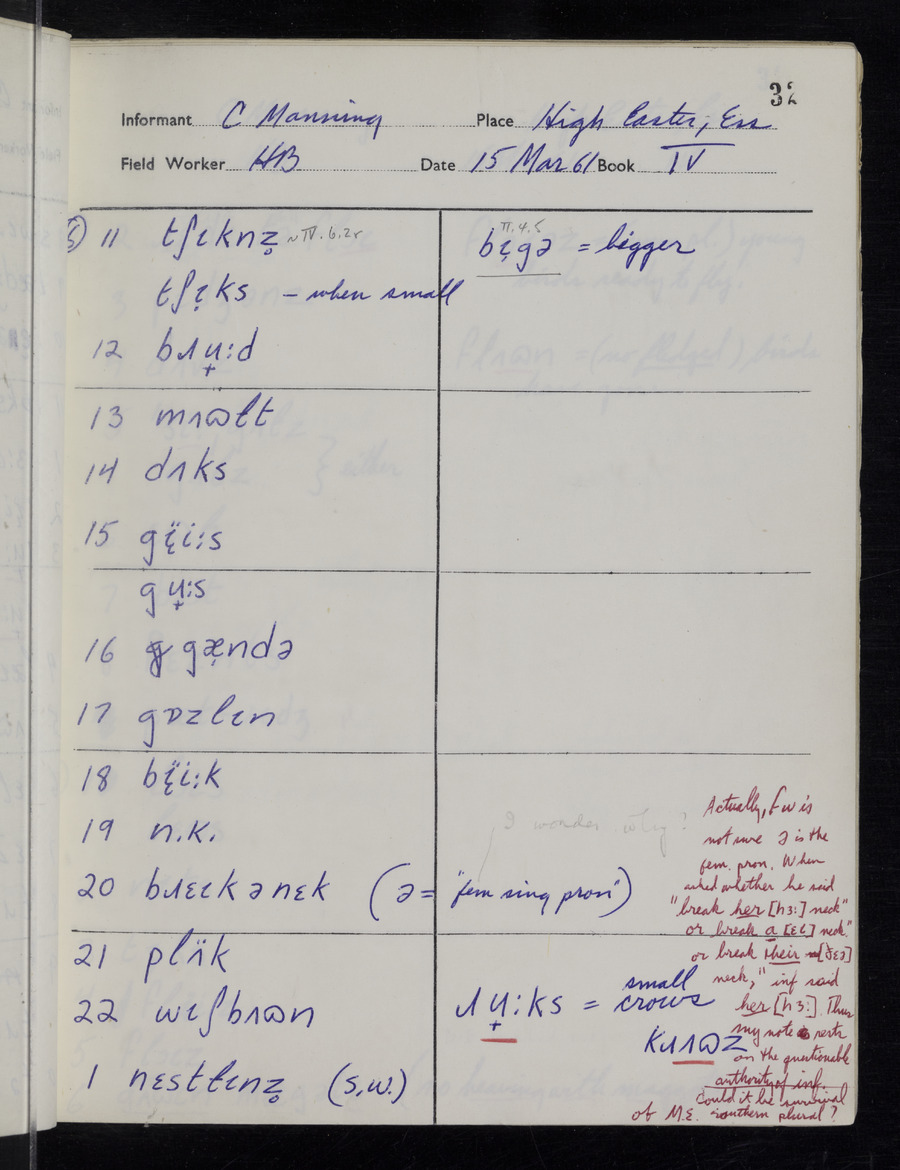 32
Informant C Manning Place High Easter, Ess
Field Worker HB Date 15 Mar 61 Book IV
5) 11 tʃɩknz̥ ~ IV.6.25
II.4.5
bɩ̣gə = bigger
tʃɩ̣ks – when small
12 bɹʉ̟:d
13 mʌɷɫt
14 dʌks
15 gɩ̣̈i:s
gʉ̟:s
16 gæ̣ndə
17 gɒzlɩn
18 bɩ̣̈i:k
19 n.k.
I wonder why?
20 bɹɛɩk ə nɛk (ə = "fem sing pron")
21 plʌ̈k
22 wɩʃbʌɷn
ɹʉ̟:ks = small crows
kɹʌɷz
1 nɛstɫɩnz̥ (s.w.)
Actually, fw is
not sure ə is the
fem. pron. When
asked whether he said
"break her [hɜ:] neck"
or break a [ɛɩ] neck"
or break their [ðɛə]
neck," inf said
her [hɜ:]. Thus
my note rests
on the questionable
authority of inf.
Could it be survival
of M.E. southern plural?